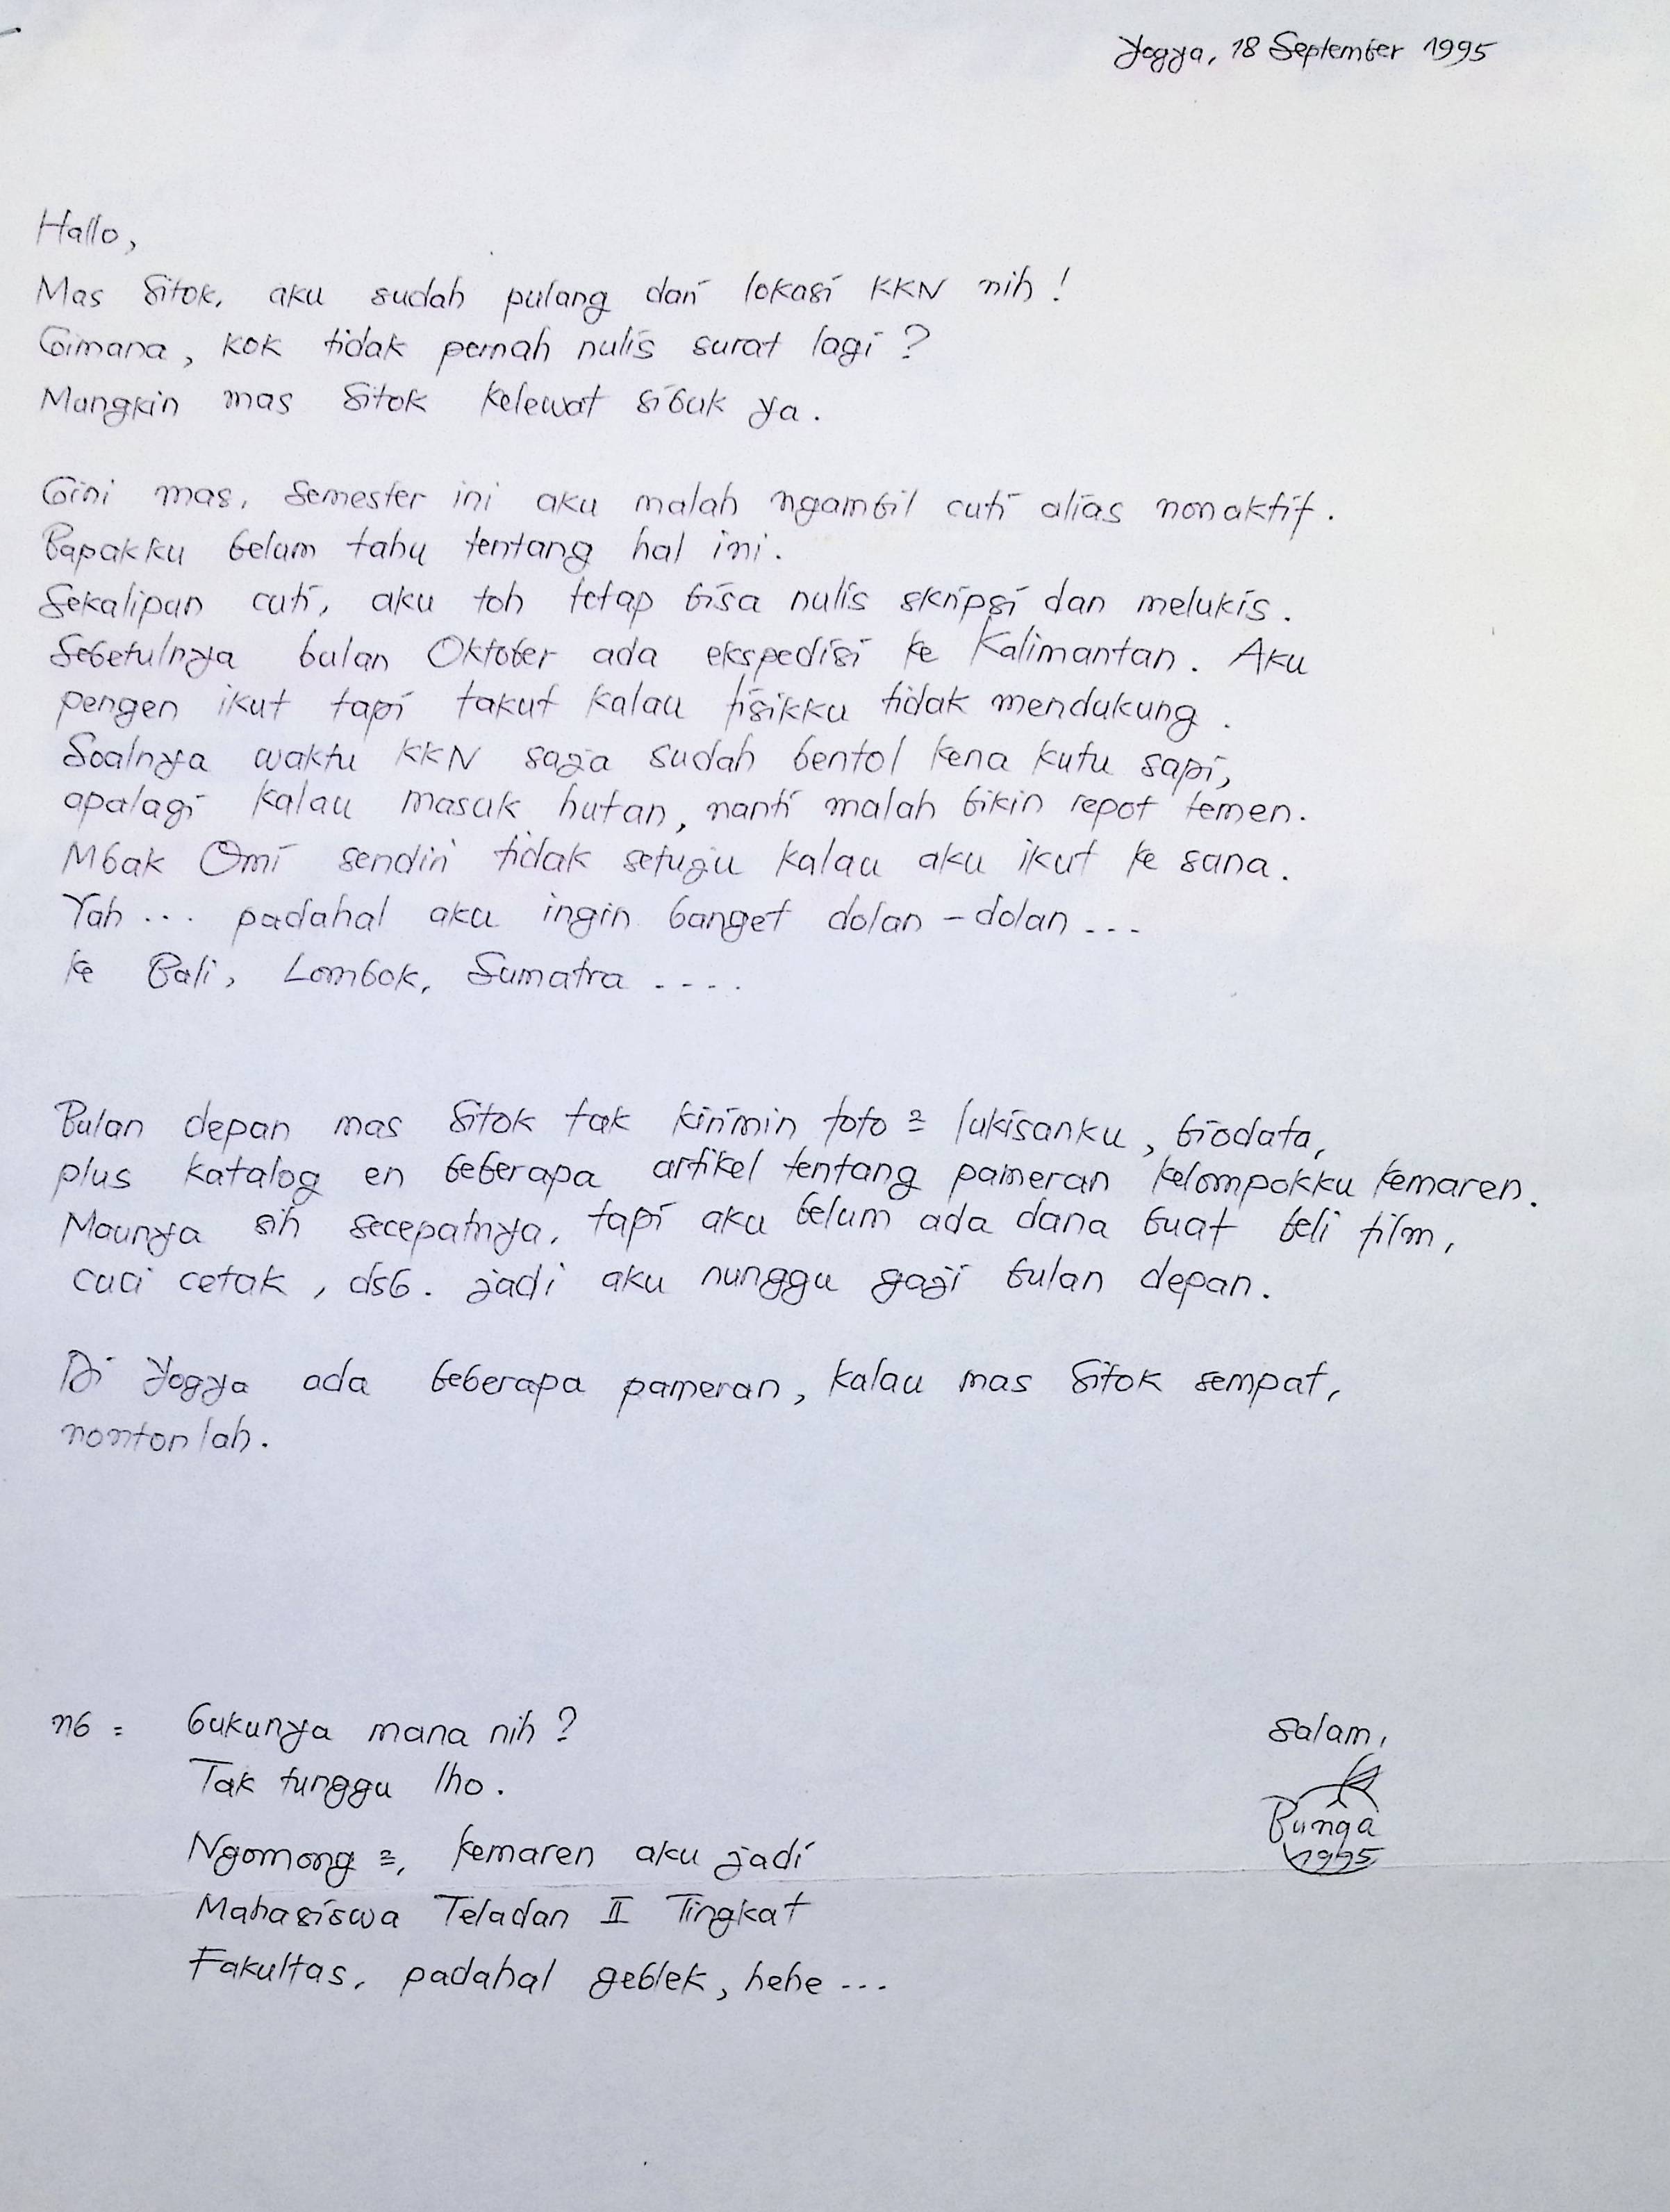 Yogya, 18 September 1995
Hallo,
Mas Sitok, aku sudah pulang dari lokasi KKN nih !
Gimana, kok tidak pernah nulis surat lagi ?
Mungkin mas Sitok kelewat sibuk ya.
Gini mas, semester ini aku malah ngambil cuti alias nonaktif.
Bapakku belum tahu tentang hal ini.
Sekalipun cuti, aku toh tetap bisa nulis skripsi dan melukis.
Sebetulnya bulan Oktober ada ekspedisi ke Kalimantan. Aku
pengen ikut tapi takut kalau fisikku tidak mendukung.
Soalnya waktu KKN saja sudah bentol kena kutu sapi,
apalagi kalau masuk hutan, nanti malah bikin repot temen.
Mbak Omi sendiri tidak setuju kalau aku ikut ke sana.
Yah ... padahal aku ingin banget dolan-dolan ...
ke Bali, Lombok, Sumatra ....
Bulan depan mas Sitok tak kirimin foto2 lukisanku, biodata,
plus katalog en beberapa artikel tentang pameran kelompokku kemaren.
Maunya sih secepatnya, tapi aku belum ada dana buat beli film,
cuci cetak, dsb. jadi aku nunggu gaji bulan depan.
Di Yogya ada beberapa pameran, kalau mas Sitok sempat,
nontonlah.
nb : bukunya mana nih ?
Tak tunggu lho.
Ngomong2, kemaren aku jadi
Mahasiswa Teladan II Tingkat
Fakultas, padahal geblek, hehe ...
salam,
Bunga
1995